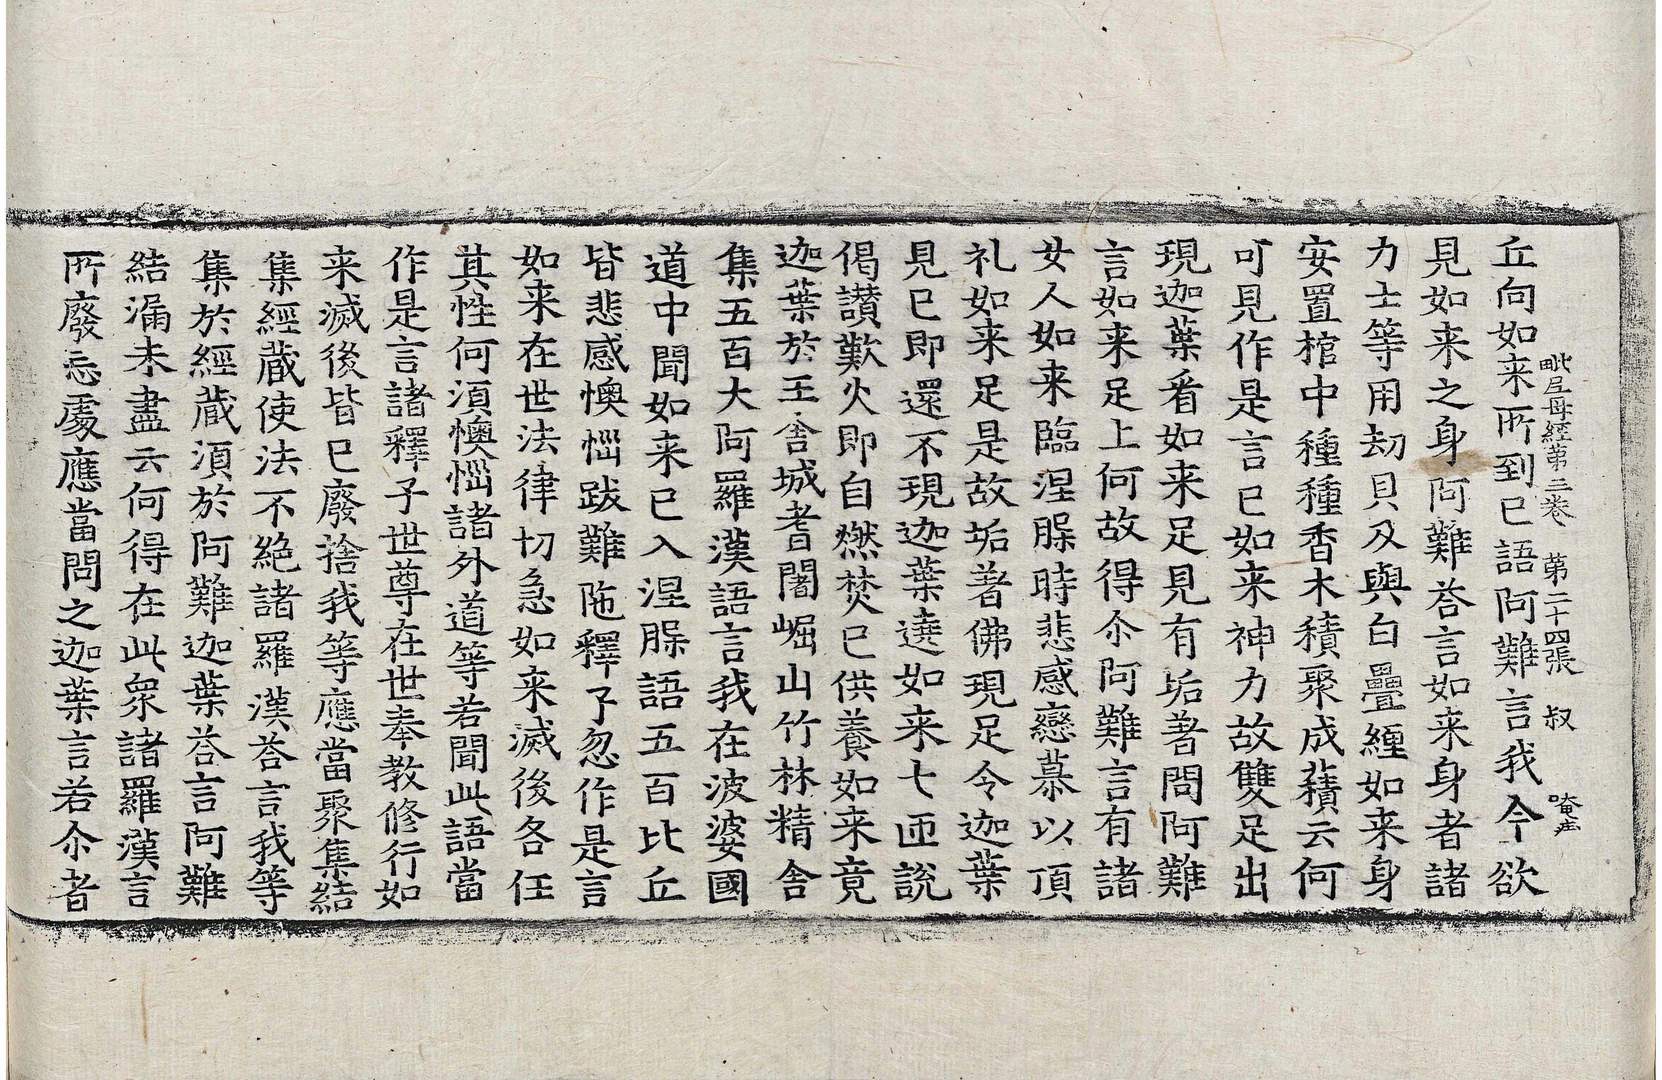 毗尼母經第三卷 第二十四張 叔
丘向如来所到已語阿難言我今欲
見如来之身阿難荅言如来身者諸
力士等用劫貝及與白疊纏如来身
安置棺中種種香木積聚成𧂐云何
可見作是言已如来神力故雙足出
現迦葉看如来足見有垢著問阿難
言如来足上何故得尒阿難言有諸
女人如来臨涅槃時悲感戀慕以頂
礼如来足是故垢著佛現足令迦葉
見已即還不現迦葉遶如来七匝說
偈讃歎火即自燃焚已供養如来竟
迦葉於王舎城耆闍崛山竹林精舎
集五百大阿羅漢語言我在波婆國
道中聞如来已入涅槃語五百比丘
皆悲感懊惱跋難陁釋子忽作是言
如来在世法律切急如来滅後各任
其性何湏懊惱諸外道等若聞此語當
作是言諸釋子世尊在世奉教修行如
来滅後皆已廢捨我等應當聚集結
集經蔵使法不絶諸羅漢荅言我等
集於經蔵湏於阿難迦葉荅言阿難
結漏未盡云何得在此衆諸羅漢言
所廢忘處應當問之迦葉言若尒者